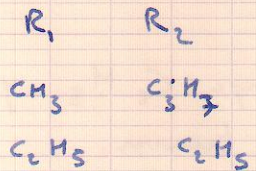 R₁ R₂
CH₃ C₃H₇
C₂H₅ C₂H₅